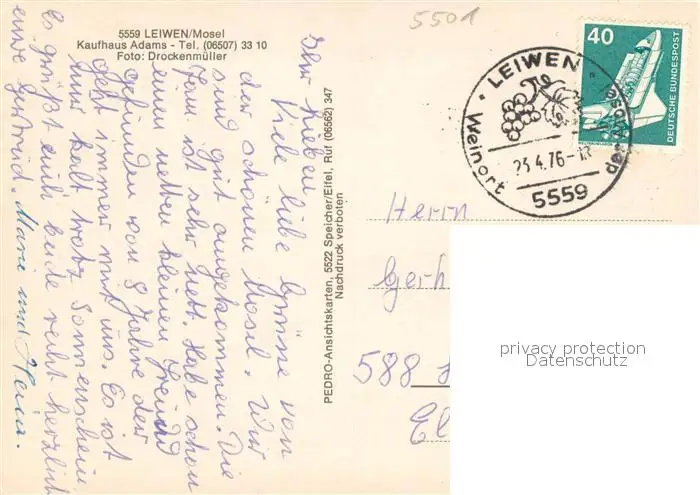 5559 LEIWEN/Mosel
Kaufhaus Adams - Tel. (06507) 33 10
Foto: Drockenmüller
5501
40
DEUTSCHE BUNDESPOST
LEIWEN
Weinort
der Mosel
23.4.76-
5559
Ihr Lieben
Viele liebe Grüsse von
der schönen Mosel. Wir
sind gut angekommen. Die
Fam. ist sehr nett. Habe schon
einen netten kleinen Freund
gefunden von 8 Jahre der
geht immer mit uns. Es ist
nur kalt trotz Sonnenschein
Es grüßt euch beide recht herzlich
eure Gertrud. Maria und Hein.
PEDRO-Ansichtskarten, 5522 Speicher/Eifel, Ruf (06562) 347
Nachdruck verboten
Herrn
Gerh
588
El
privacy protection
Datenschutz